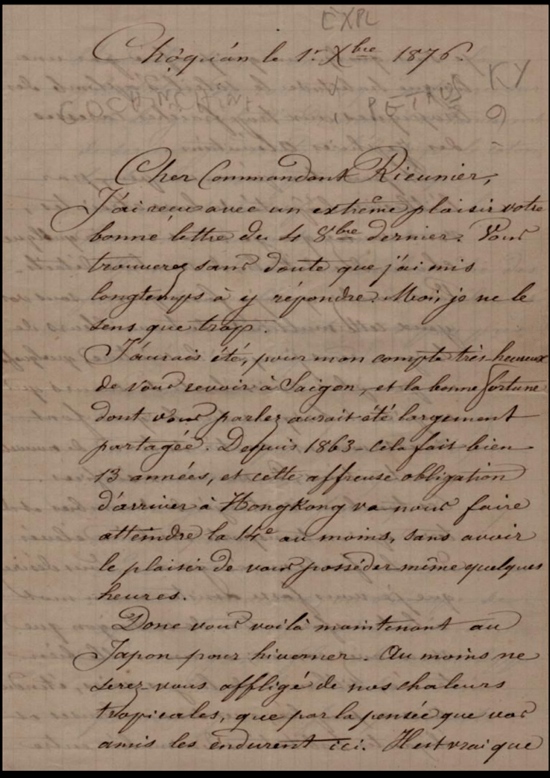 EXPL
Chợquán le 1r Xbre 1876.
KY
COCHINCHINE
PETRUS
9
Cher Commandant Rieunier,
J'ai reçu avec un extrême plaisir votre
bonne lettre du 4 8bre dernier. Vous
trouverez sans doute que j'ai mis
longtemps à y répondre. Moi, je ne le
sens que trop.
J'aurais été, pour mon compte très heureux
de vous revoir à Saigon, et la bonne fortune
dont vous parlez aurait été largement
partagée. Depuis 1863 cela fait bien
13 années, et cette affreuse obligation
d'arriver à Hongkong va nous faire
attendre la 14e au moins, sans avoir
le plaisir de vous posséder même quelques
heures.
Donc vous voilà maintenant au
Japon pour hiverner. Au moins ne
serez vous affligé de nos chaleurs
tropicales, que par la pensée que vos
amis les endurent ici. Il est vrai que